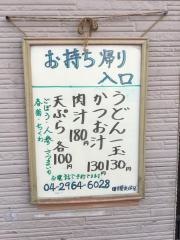 お持ち帰り
入口
うどん一玉 130
かつお汁 130
肉汁 180円
天ぷら各 100円
ごぼう・人参・さつまいも
春菊・ちくわ
お電話で予約できます
04-2964-6028